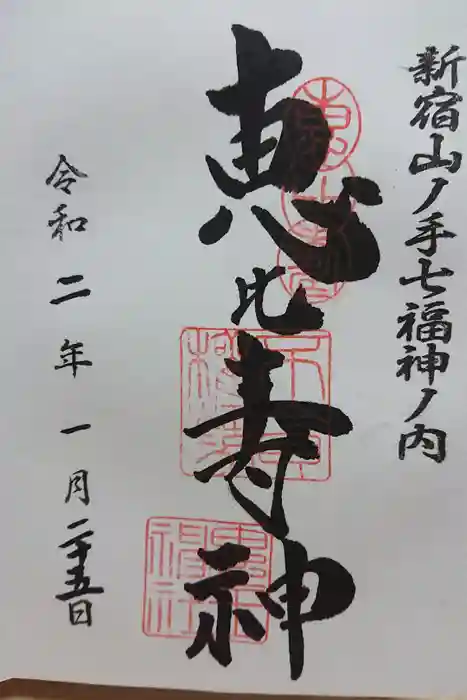 新宿山ノ手七福神ノ内
恵比寿神
令和二年一月二十五日